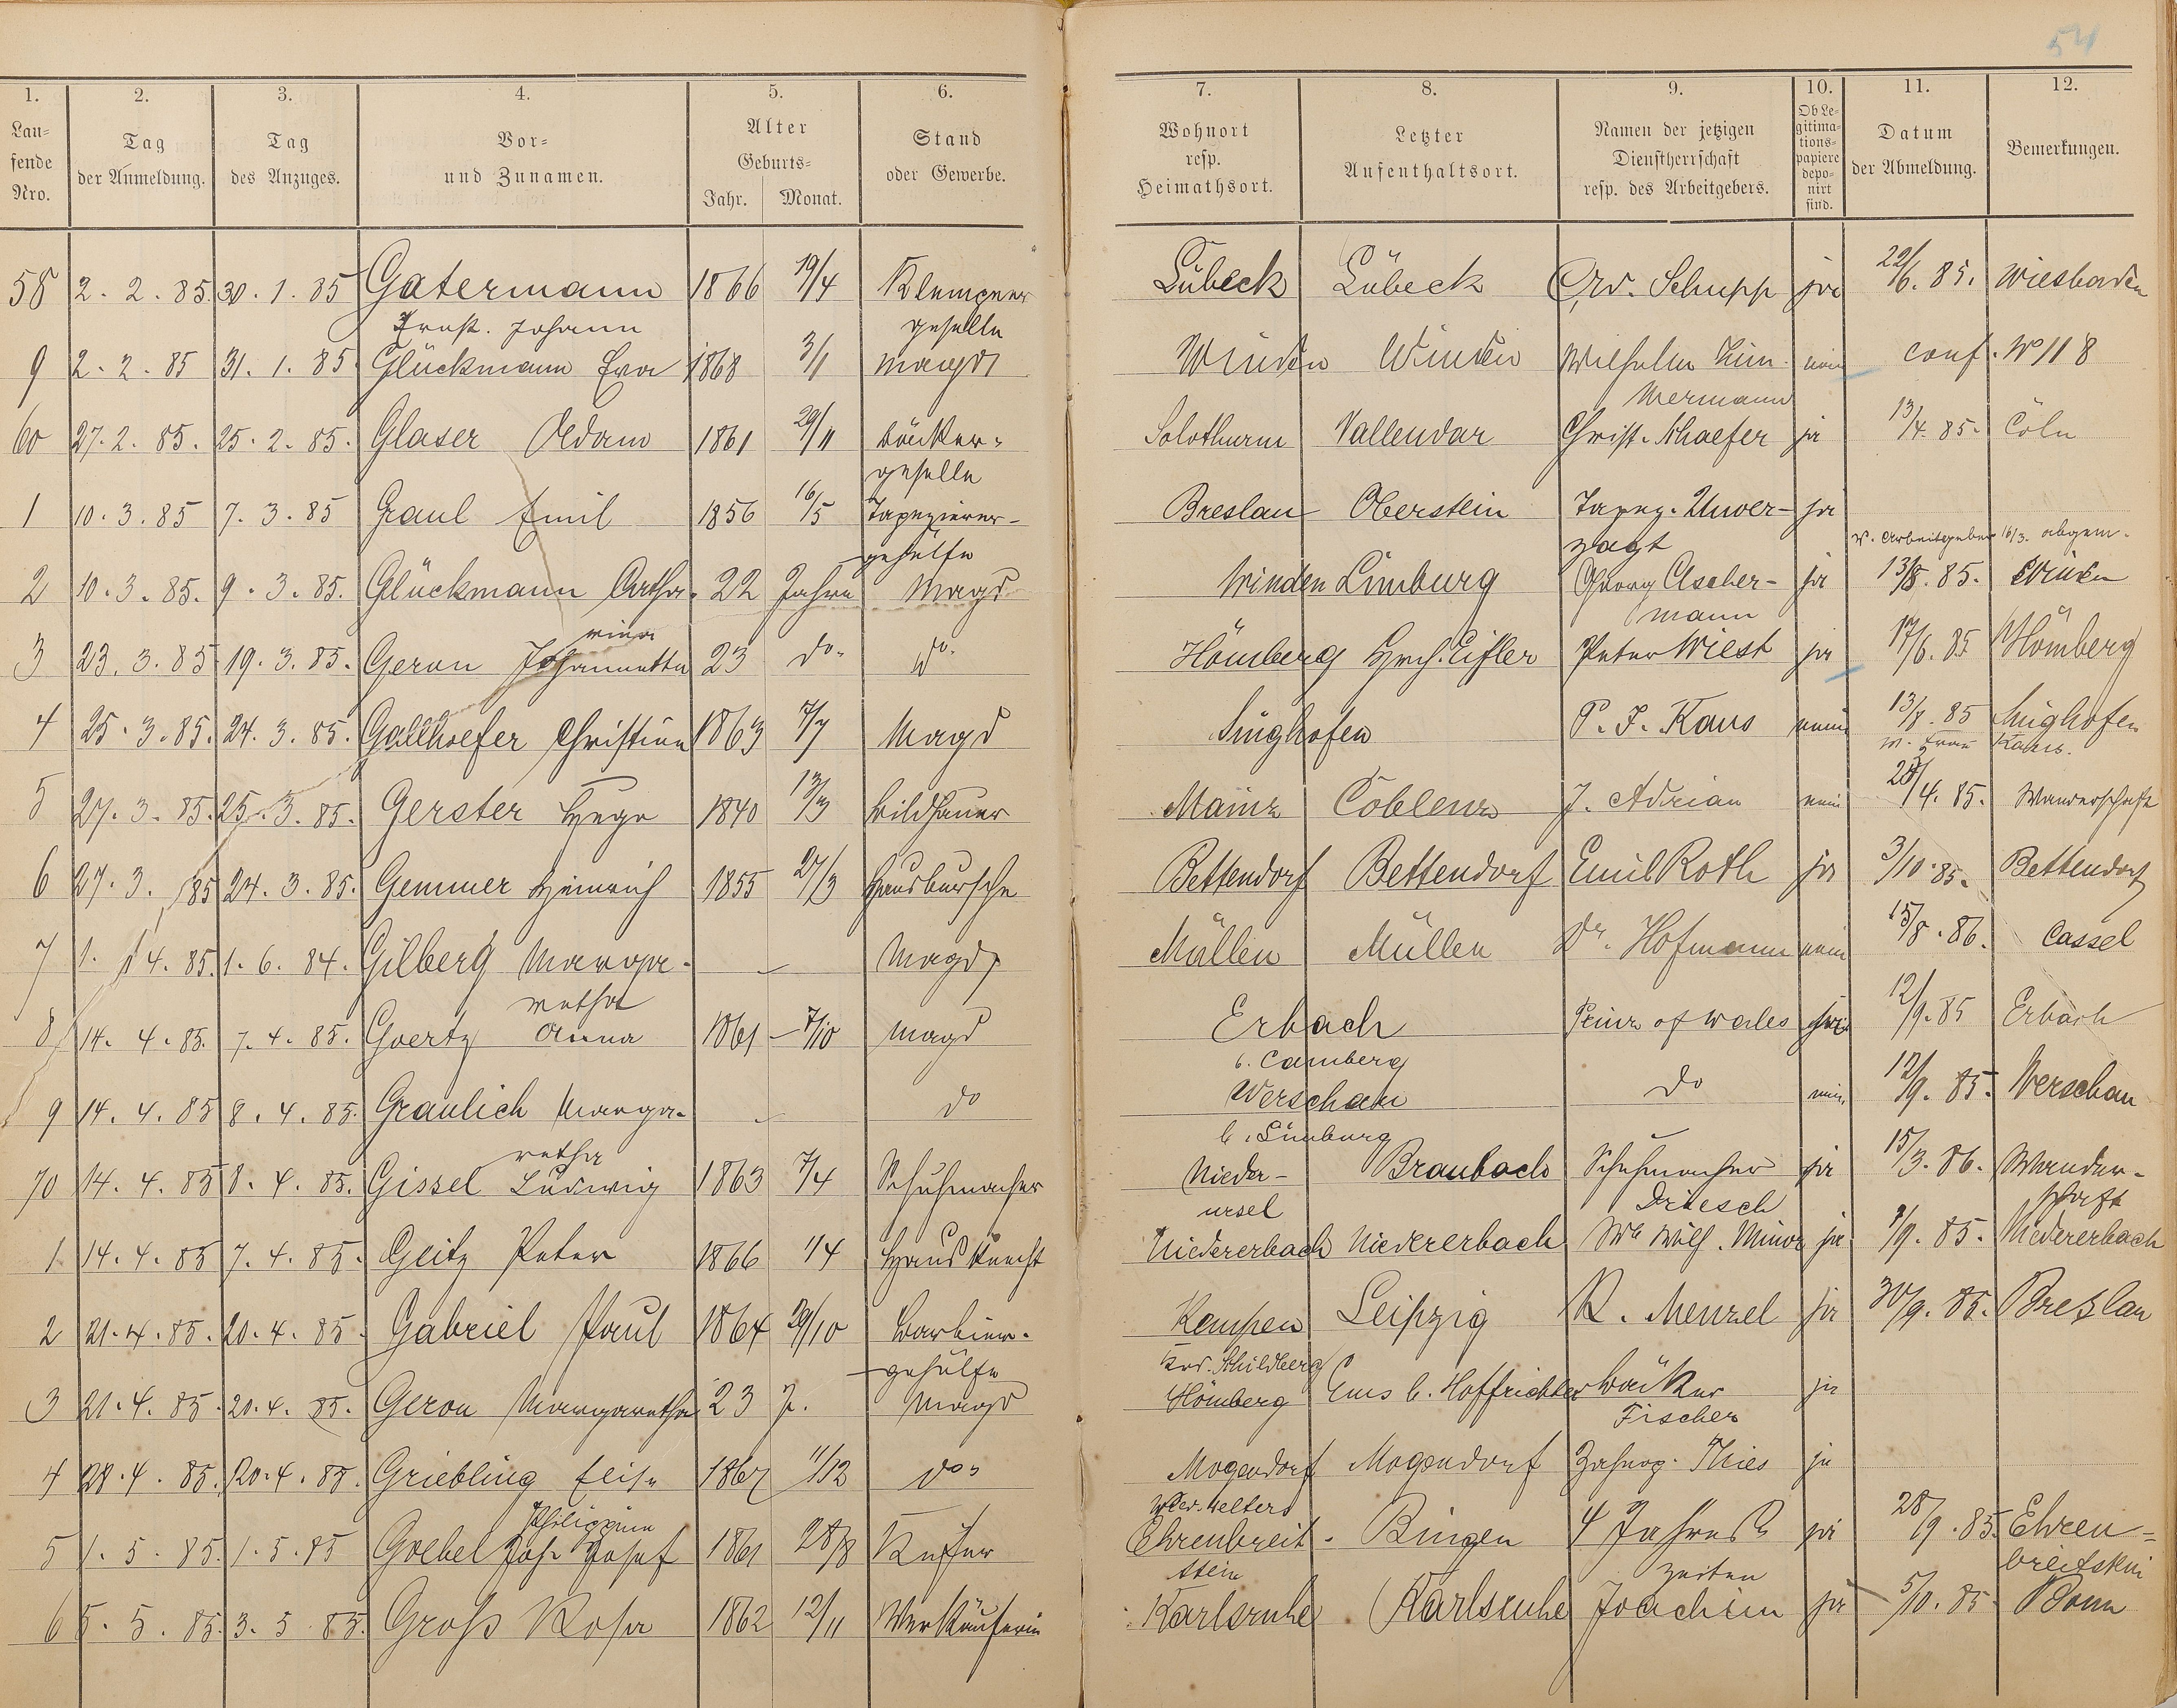 54
1. 2. 3. 4. 5. 6. 7. 8. 9. 10. 11. 12.
Lau-
fende
Nro.
Tag
der Anmeldung.
Tag
des Anzuges.
Vor-
und Zunamen.
Alter
Geburts-
Jahr. Monat.
Stand
oder Gewerbe.
Wohnort
resp.
Heimathsort.
Letzter
Aufenthaltsort.
Namen der jetzigen
Dienstherrschaft
resp. des Arbeitgebers.
Ob Le-
gitima-
tions-
papiere
depo-
nirt
sind.
Datum
der Abmeldung.
Bemerkungen.
58 2. 2. 85. 30. 1. 85 Gatermann 1866 19/4 Klempner Lübeck Lübeck Schupp ja 22/6. 85. Wiesbaden
Ernst. Johann geselle
9 2. 2. 85 31. 1. 85 Glückmann Eva 1868 3/1 Magd Winden Winden Wilhelm Zim- nein conf. No 118
mermann
60 27. 2. 85. 25. 2. 85. Glaser Adam 1861 29/11 Bäcker- Solothurn Vallendar Christ. Schaefer ja 13/4. 85. Cöln
geselle
1 10. 3. 85 7. 3. 85 Graul Emil 1856 16/5 Tapezierer- Breslau Oberstein Tapez. Unver- ja
gehülfe zagt v. Arbeitgeber 16/3. abgem.
2 10. 3. 85. 9. 3. 85. Glückmann Catha- 22 Jahre Magd Winden Limburg Georg Ascher- ja 13/8. 85. Winden
rina mann
3 23. 3. 85 19. 3. 85. Geron Johannetta 23 do. do. Hömberg Hrch. Eifler Peter Wiest ja 17/6. 85 Hömberg
4 25. 3. 85. 24. 3. 85. Gallhoefer Christine 1863 7/7 Magd Singhofen P. J. Kaus nein 13/8. 85 Singhofen
Frau Kaus.
5 27. 3. 85. 25. 3. 85. Gerster Hugo 1840 13/3 Bildhauer Mainz Coblenz J. Adrian nein 28/4. 85. Wanderschaft
6 27. 3. 85 24. 3. 85. Gemmer Heinrich 1855 27/3 Hausbursche Bettendorf Bettendorf Emil Roth ja 3/10. 85. Bettendorf
7 1. 4. 85. 1. 6. 84. Gilberg Marga- — Magd Müllen Müllen Dr. Hofmann nein 15/8. 86. Cassel
retha
8 14. 4. 85. 7. 4. 85. Goertz Anna 1861 7/10 Magd Erbach Prinz of Wales 12/9. 85 Erbach
b. Camberg
9 14. 4. 85 8. 4. 85. Graulich Marga- — do Werschau do nein 12/9. 85. Werschau
retha b. Limburg
70 14. 4. 85 8. 4. 85. Gissel Ludwig 1863 7/4 Schuhmacher Nieder- Braubach Schuhmacher ja 15/3. 86. Wander-
ursel Driesch schaft
1. 14. 4. 85 7. 4. 85. Geitz Peter 1866 1/4 Hausknecht Niedererbach Niedererbach Wwe Wilh. Minor ja 7/9. 85. Niedererbach
2 21. 4. 85. 20. 4. 85. Gabriel Paul 1864 29/10 Barbier- Kempen Leipzig R. Menzel ja 30/9. 85. Breslau
gehülfe Schildberg
3 21. 4. 85. 20. 4. 85. Geron Margaretha 23 J. Magd Hömberg Ems b. Hoffrichter Bäcker ja
Fischer
4 28. 4. 85. 20. 4. 85. Griebling Elise 1867 11/12 do. Mogendorf Mogendorf Thies ja
Philippine Selters
5 1. 5. 85. 1. 5. 85 Goebel Joh. Josef 1861 28/8 Küfer Ehrenbreit- Bingen 4 Jahres- ja 28/9. 85. Ehren-
stein zeiten breitstein
6 5. 5. 85. 3. 5. 85. Groß Rosa 1862 12/11 Verkäuferin Karlsruhe Karlsruhe Joachim ja 5/10. 85 Bonn